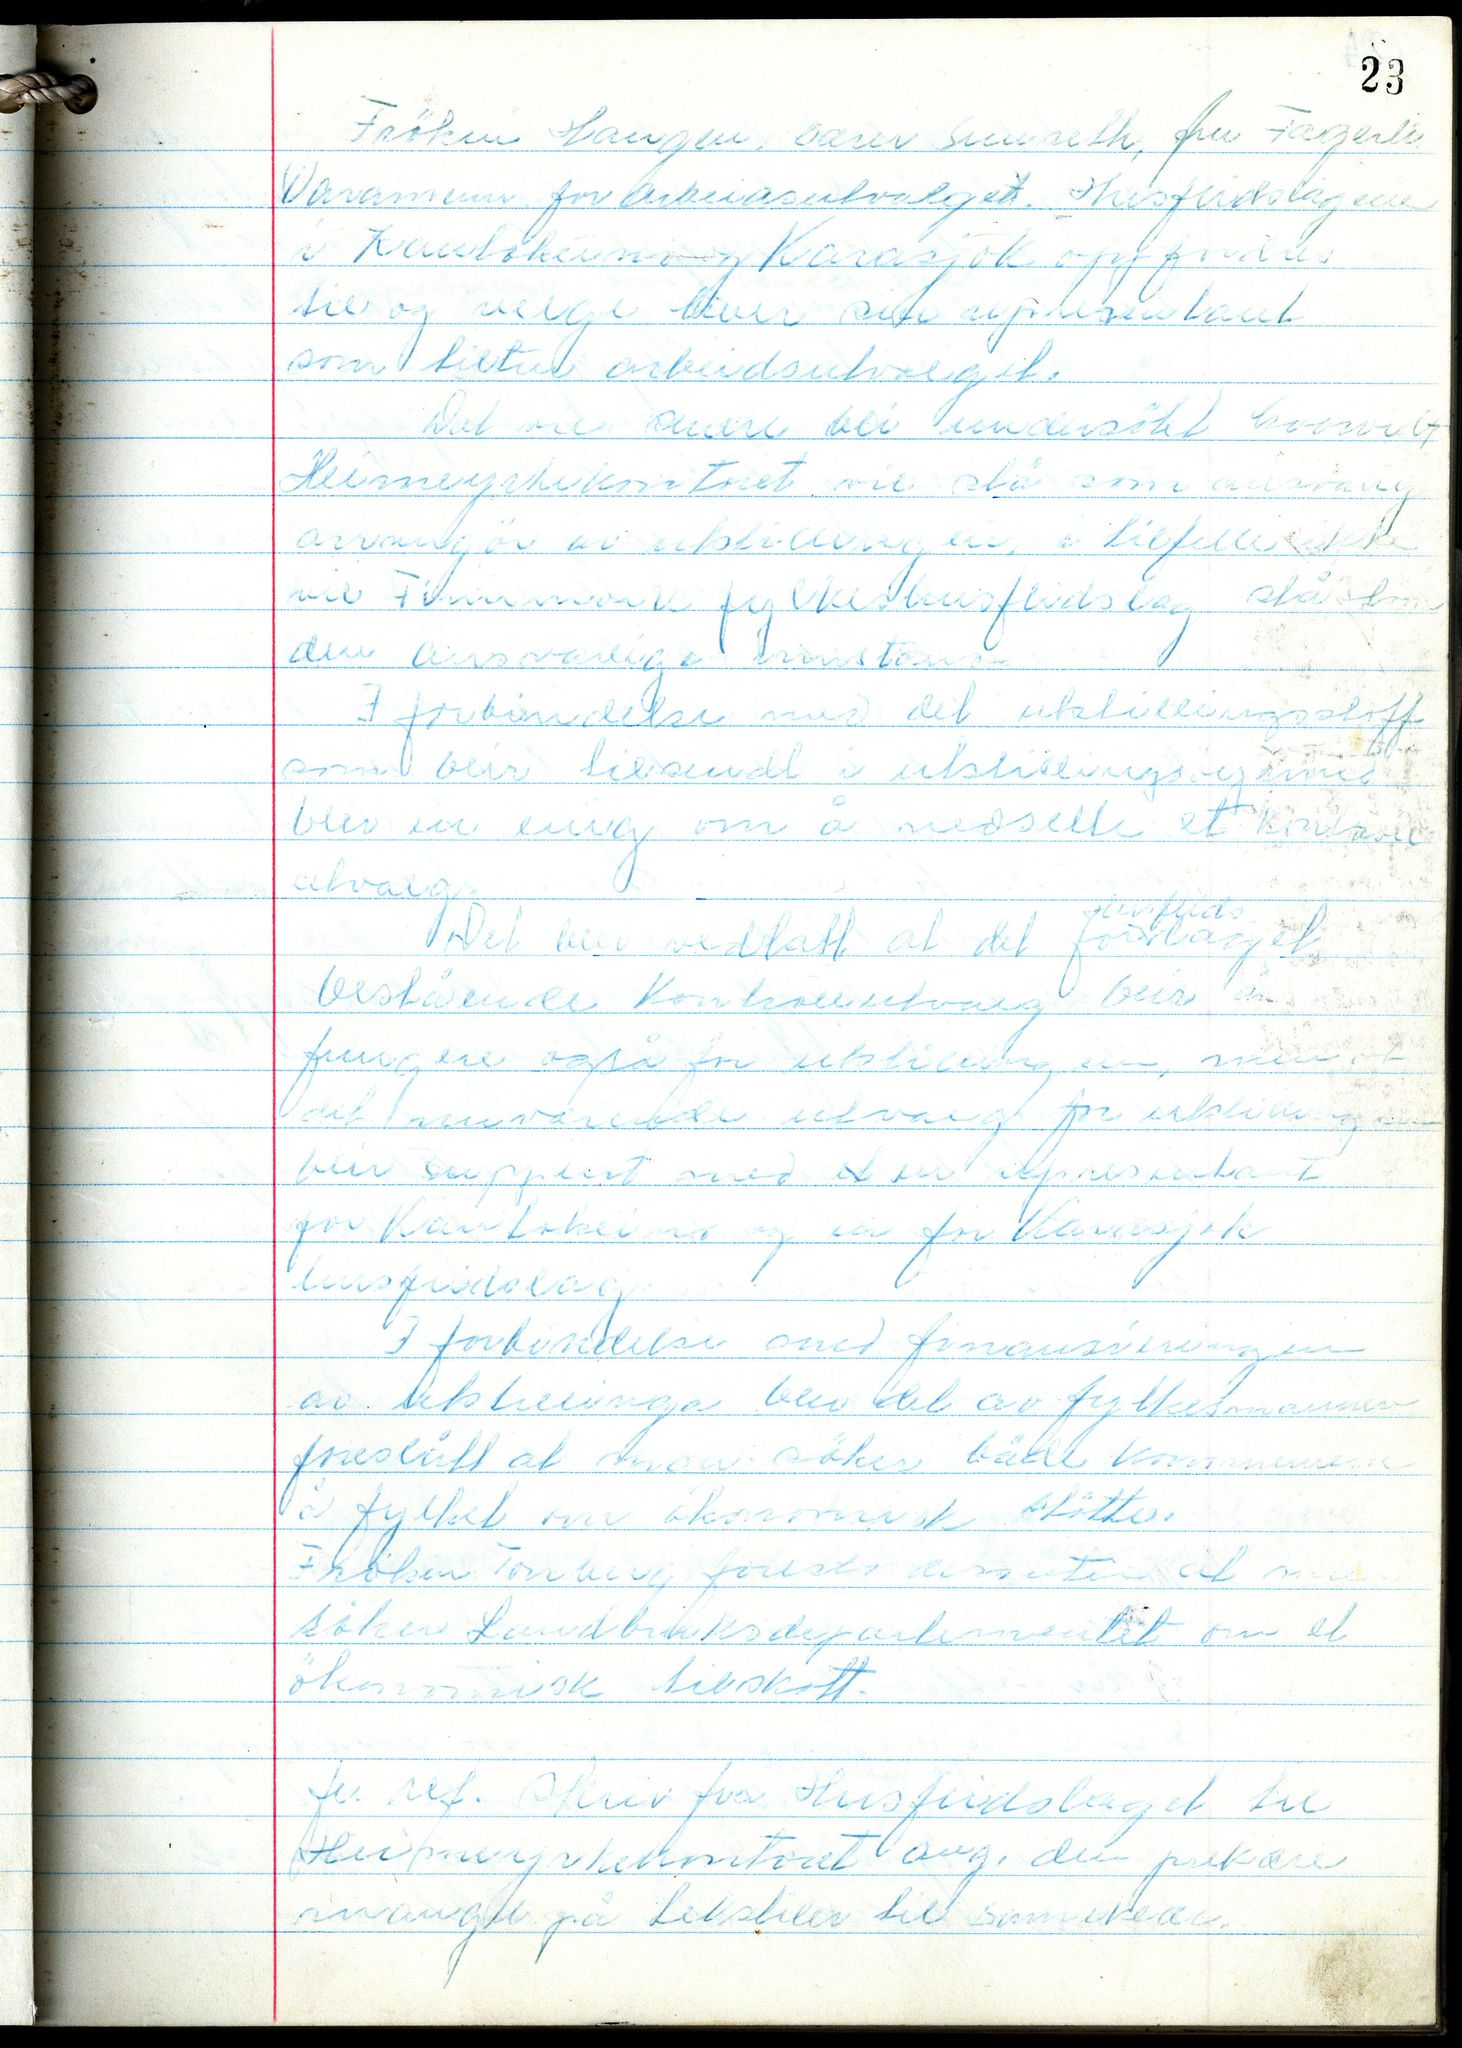 23
Fröken Haugen, lærer Sunseth, fru Fagerli
Varamenn for arbeidsutvalget. Husflidslagene
i Kautokeino og Karasjok oppfordres
til og velge hver sin representant
som tiltrer arbeidsutvalget.
Det vil senere bli undersökt hvorvidt
Heimeyrkekontoret vil stå som ansvarlig
arrangör av utstillingen, i tilfelle ikke
vil Finnmark fylkeshusflidslag stå som
den ansvarlige instans.
I forbindelse med det utstillingsstoff
som blir tilsendt i utstillingsöyemed
blev en enig om å nedsette et kontroll
utvalg.
husflids
Det blev vedtatt at det for laget
bestående kontrollutvalg blir å
fungere også for utstillingen, men at
det nuværende utvalg for utstillingen
blir supplert med en representant
for Kautokeino og en for Karasjok
husflidslag
I forbindelse med finansieringen
av utstillinga blev det av fylkesmannen
foreslått at man söker både kommunene
i fylket om ökonomisk stötte.
Fröken Torberg foreslo dessuten at man
söker Landbruksdepartementet om et
ökonomisk tilskott.
ref. skriv fra Husflidslaget til
Heimeyrkekontoret ang. den prekære
mangel på tekstiler til samene.